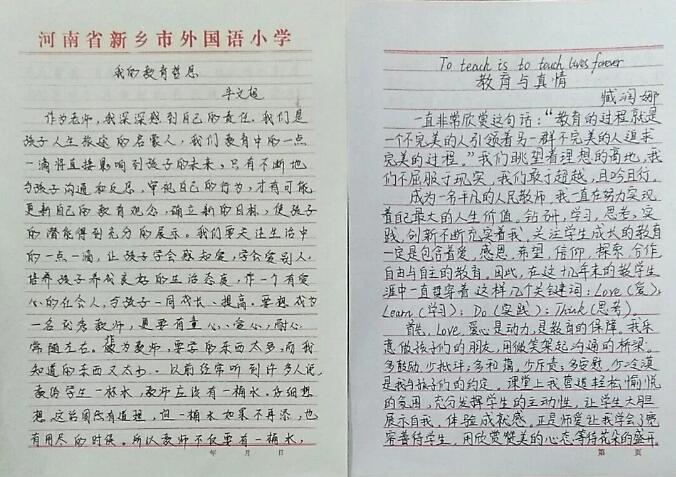 河南省新乡市外国语小学
我的教育哲思
牛文超
作为老师，我深深感到自己的责任。我们是
孩子人生旅途的启蒙人，我们教育中的一点
一滴将直接影响到孩子的未来，只有不断地
与孩子沟通和反思，审视自己的行为，才有可能
更新自己的教育观念，确立新的目标，使孩子
的潜能得到充分的展示。我们要关注生活中
的一点一滴，让孩子学会感知爱，学会爱别人，
培养孩子养成良好的生活态度，作一个有爱
心的社会人，与孩子一同成长、提高。要想成为
一名优秀教师，更要有童心、爱心，耐心，
常随左右。作为教师，要学的东西太多，而我
知道的东西又太少。以前经常听到许多人说，
教给学生一杯水，教师应该有一桶水。仔细想
想这的固然有道理，但一桶水如果不再添，也
有用尽的时候。所以教师不仅要有一桶水，
年 月 日
To teach is to touch lives forever
教育与真情
臧润娜
一直非常欣赏这句话：“教育的过程就是
一个不完美的人引领着另一群不完美的人追求
完美的过程。”我们眺望着理想的高地，我
们不屈服于现实，我们敢于超越，且吟且行。
成为一名平凡的人民教师，我一直在努力实现
着自己最大的人生价值，钻研，学习，思考，实
践，创新不断充实着我，关注学生成长的教育
一定是包含着爱，感恩，希望，信仰，探索，合作
自由与自主的教育。因此，在这十几年来的教学生
涯中一直贯穿着这样几个关键词：Love（爱）；
Learn（学习）；Do（实践）；Think（思考）。
首先，Love，爱心是动力，是教育的保障。我乐
意做孩子们的朋友，用微笑架起沟通的桥梁。
多鼓励，少批评；多和蔼，少斥责；多安慰，少冷漠
是我与孩子们的约定。课堂上我营造轻松愉悦
的氛围，充分发挥学生的主动性，让学生大胆
展示自我，体验成就感。正是师爱让我学会了宽
容善待学生，用欣赏赞美的心态等待花朵的盛开。
第 页